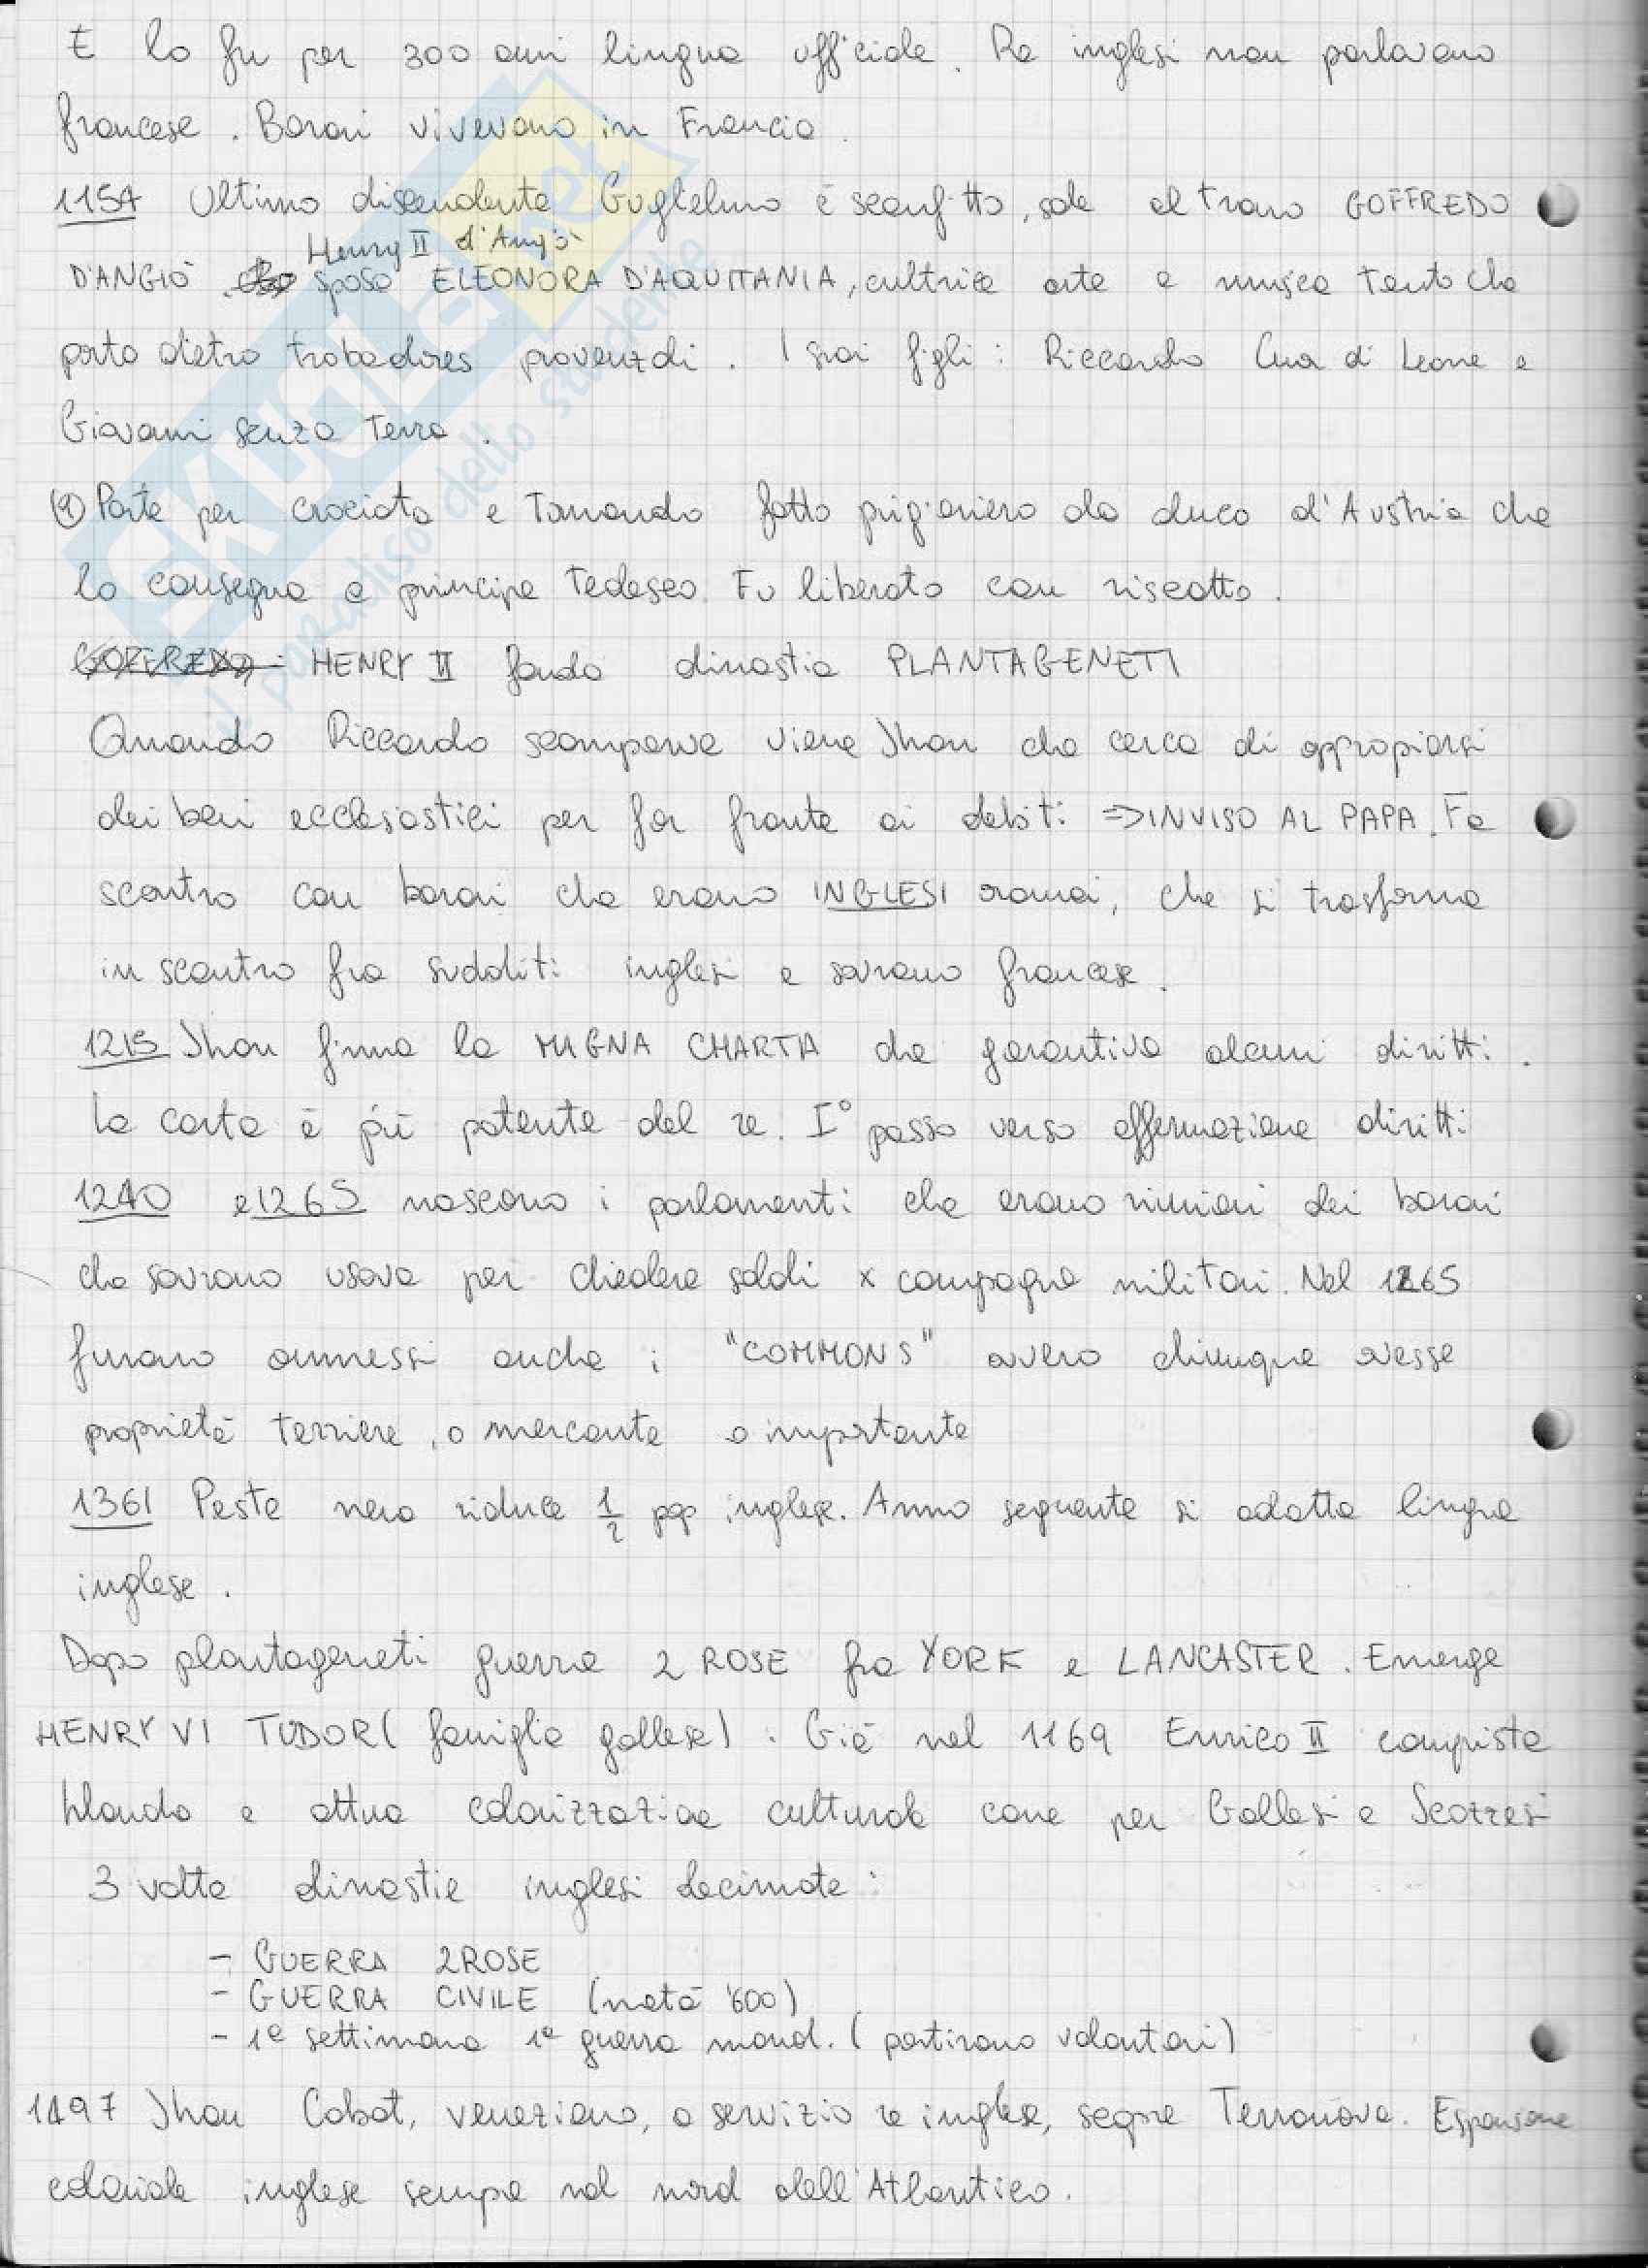 E lo fu per 300 anni lingua ufficiale. Re inglesi non parlavano
francese. Baroni vivevano in Francia.
1154 Ultimo discendente Guglielmo è sconfitto, sale al trono GOFFREDO
Henry II d'Angiò
D'ANGIÒ sposa ELEONORA D'AQUITANIA, cultrice arte e musica tanto che
porta dietro trobadores provenzali. I suoi figli: Riccardo Cuor di Leone e
Giovanni senza terra.
Parte per crociata e tornando fatto prigioniero da duca d'Austria che
lo consegna a principe tedesco. Fu liberato con riscatto.
GOFFREDO HENRY II fonda dinastia PLANTAGENETI
Quando Riccardo scompare viene Jhon che cerca di appropiarsi
dei beni ecclesiastici per far fronte ai debiti => INVISO AL PAPA. Fa
scontro con baroni che erano INGLESI oramai, che si trasforma
in scontro fra sudditi inglesi e sovrano francese.
1215 Jhon firma la MAGNA CHARTA che garantiva alcuni diritti.
La carta è più potente del re. I° passo verso affermazione diritti
1240 e 1265 nascono i parlamenti che erano riunioni dei baroni
che sovrano usava per chiedere soldi x campagne militari. Nel 1265
furono ammessi anche i "COMMONS" ovvero chiunque avesse
proprietà terriere, o mercante o importante
1361 Peste nera riduce 1/2 pop inglese. Anno seguente si adotta lingua
inglese.
Dopo plantageneti guerra 2 ROSE fra YORK e LANCASTER. Emerge
HENRY VI TUDOR (famiglia gallese). Già nel 1169 Enrico II conquista
Irlanda e attua colonizzazione culturale come per Gallesi e Scozzesi
3 volte dinastie inglesi decimate:
- GUERRA 2ROSE
- GUERRA CIVILE (metà '600)
- 1ª settimana 1ª guerra mond. (partirono volontari)
1497 Jhon Cabot, veneziano, a servizio re inglese, scopre Terranova. Espansione
coloniale inglese sempre nel nord dell'Atlantico.
SKUOLA.net
il paradiso dello studente